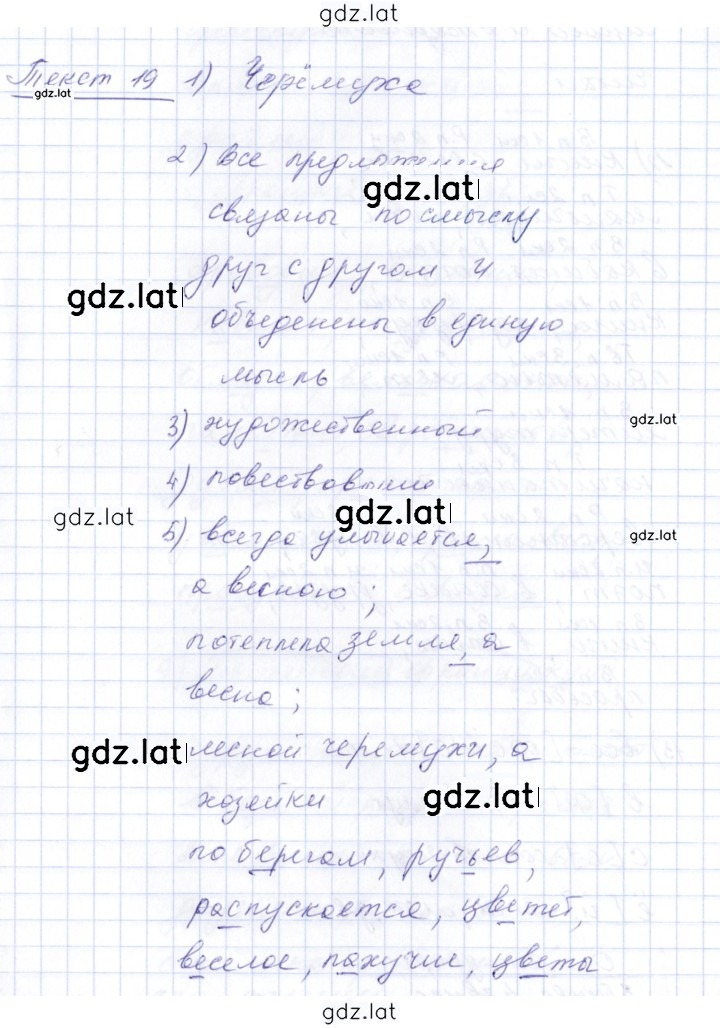 gdz.lat
Текст 19 1) Черёмуха
gdz.lat
2) Все предложения
gdz.lat
связаны по смыслу
друг с другом и
gdz.lat
объеденены в единую
мысль
3) художественный
gdz.lat
4) повествование
gdz.lat
gdz.lat
5) всегда улыбается,
gdz.lat
а весною;
потеплела земля, а
весна;
gdz.lat
лесной черемухи, а
хозяйки
gdz.lat
по берегам, ручьев,
распускается, цветет,
веселое, пахучие, цветы
gdz.lat